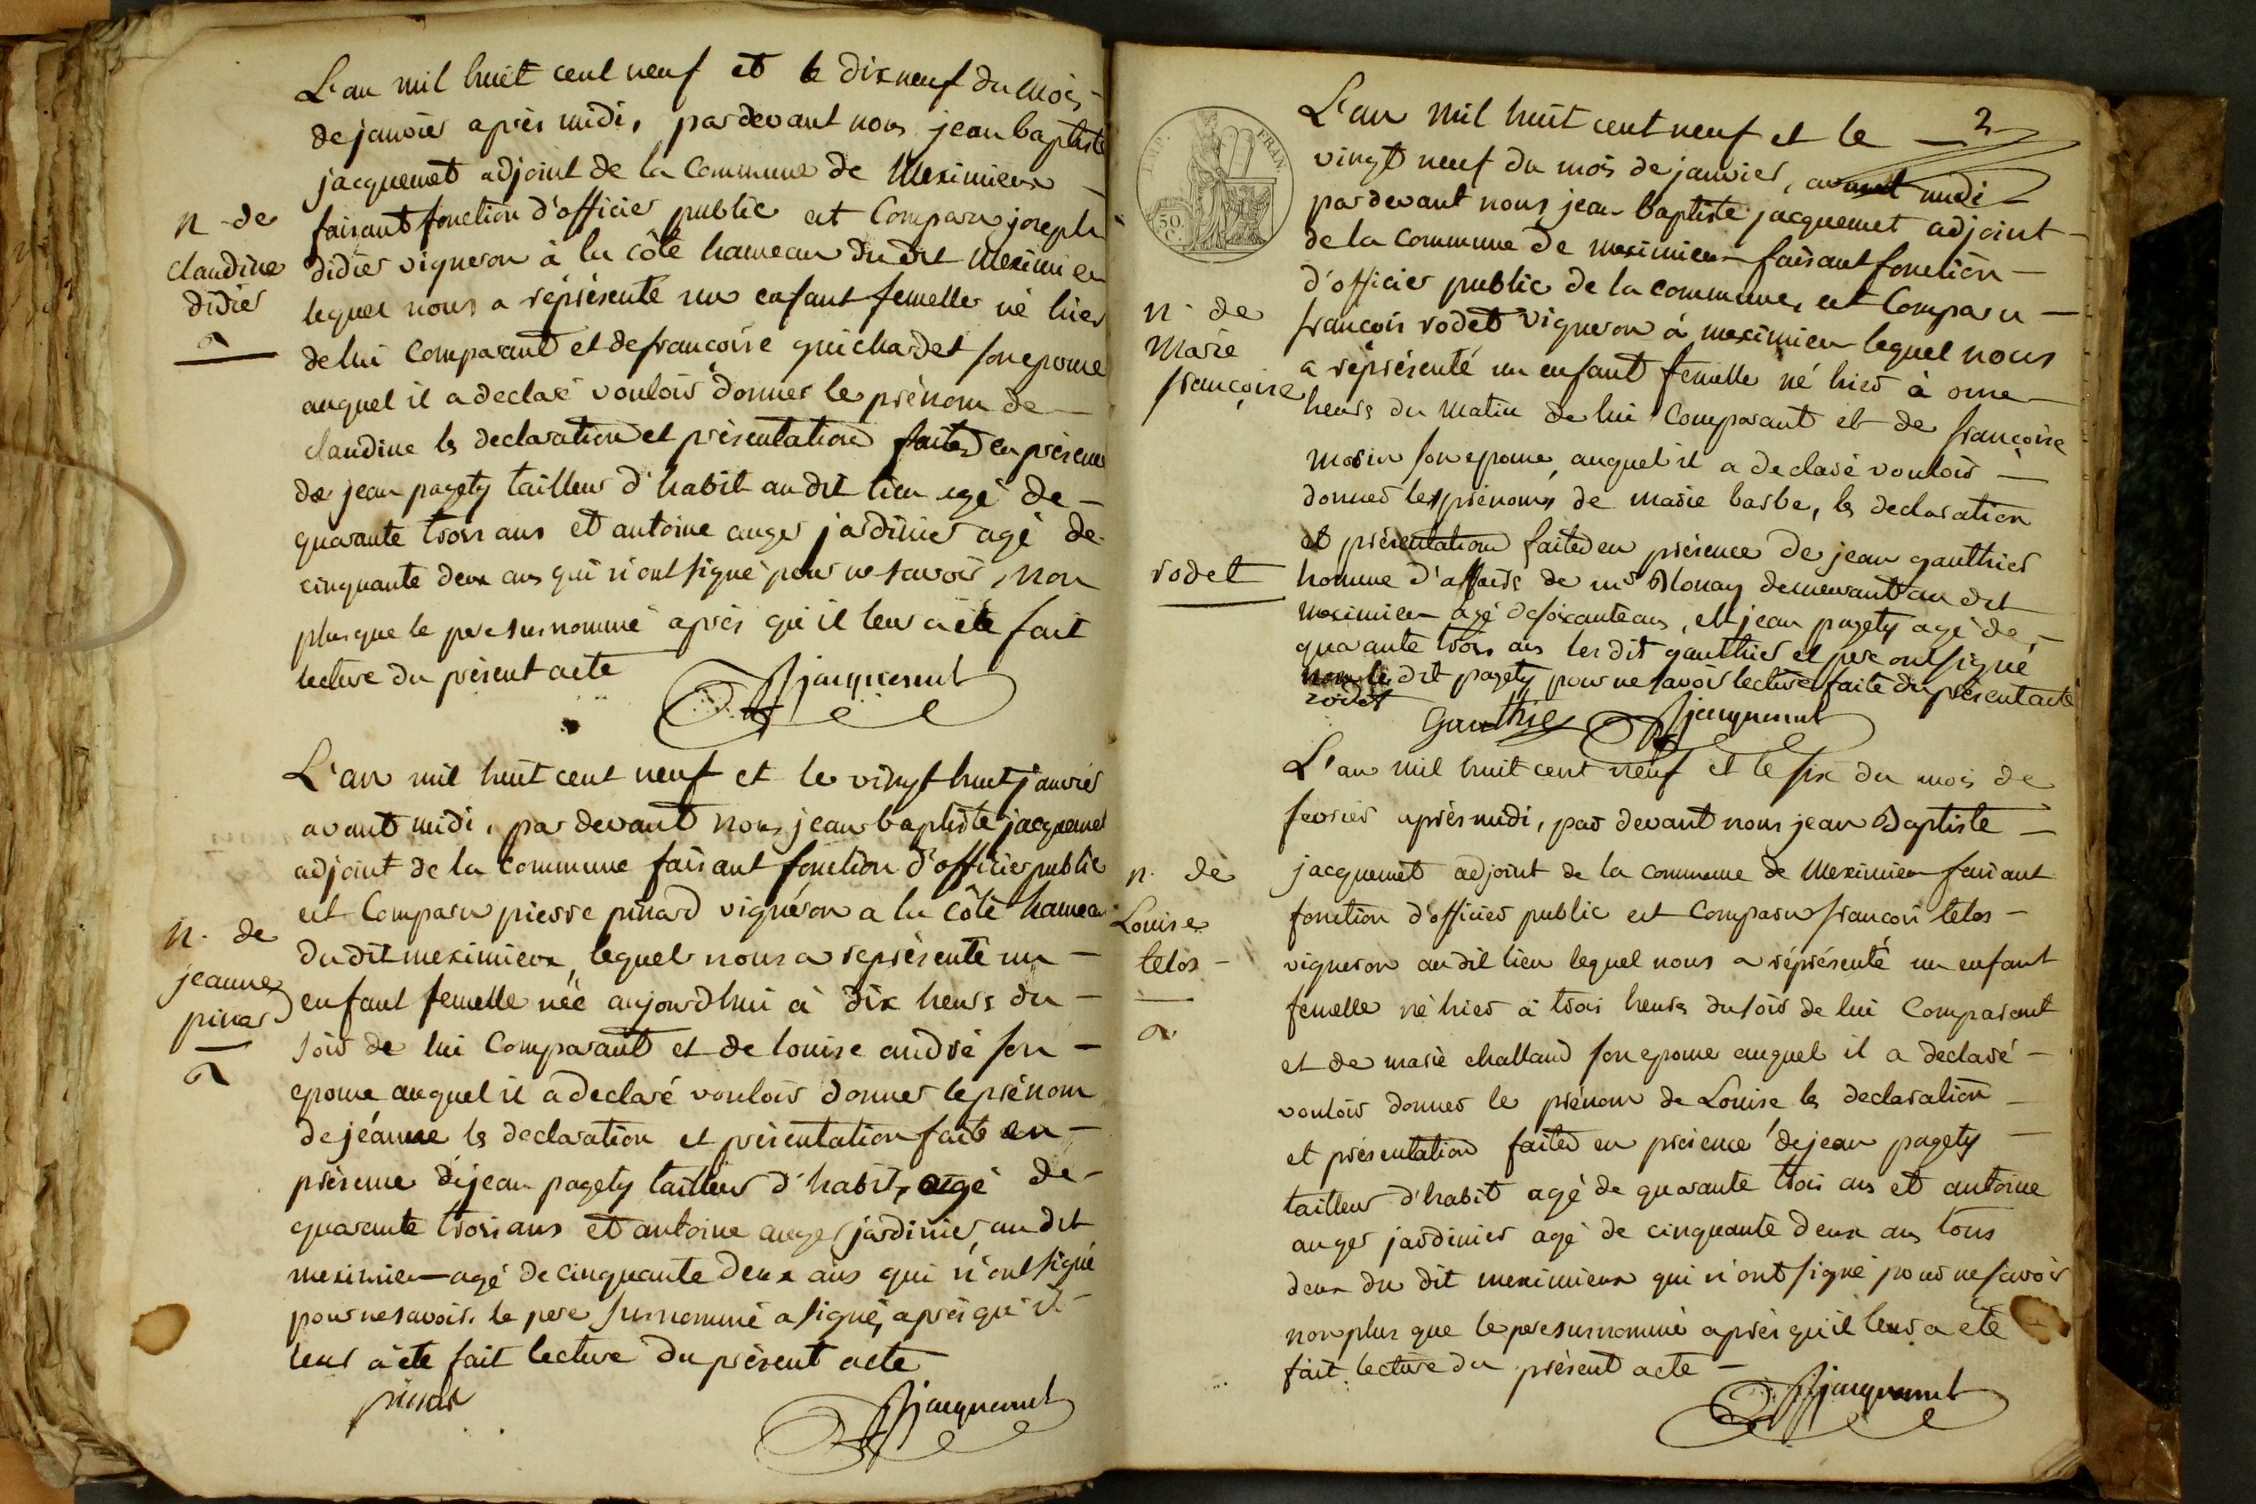 L'an mil huit cent neuf et le dix neuf du mois
de janvier après midi, pardevant nous jean baptiste
jacquemet adjoint de la commune de Meximieux
faisant fonction d'officier public est comparu joseph
didier vigneron à la côte hameau du dit Meximieu
lequel nous a réprésenté un enfant femelle né hier
de lui comparant et de francoise guichardet son epouse
auquel il a declaré vouloir donner le prénom de
claudine ls declaration et présentation faites en présence
de jean pagety tailleur d'habit au dit lieu agé de
quarante trois ans et antoine auger jardinier agé de
cinquante deux ans qui n'ont signé pour ne savoir, non
plus que le pere surnommé après qu'il leur a été fait
lecture du présent acte
jacquemet
n. de
claudine
didier
L'an mil huit cent neuf et le vingt huit janvier
avant midi, par devant nous jean baptiste jacquemet
adjoint de la commune faisant fonction d'officier public
est comparu pierre pinard vigneron a la côte hameau
du dit meximieux, lequel nous a représenté un
enfant femelle née aujourdhui à dix heurs du
soir de lui comparant et de louise andré son
epouse auquel il a declaré vouloir donner le prénom
de jéanne ls declaration et présentation faite en
présence de jean pagety tailleur d'habit, agé de
quarante trois ans et antoine auger jardinier, au dit
meximieu agé de cinquante deux ans qui n'ont signé
pour ne savoir, le pere surnommé a signé, après qu'il
leur a été fait lecture du présent acte
pinard
jacquemet
n. de
jeanne
pinard
2
L'an mil huit cent neuf et le
vingt neuf du mois de janvier, avant midi
pardevant nous jean baptiste jacquemet adjoint
de la commune de meximieu faisant fonction
d'officier public de la commune, est comparu
françois rodet vigneron à meximieu lequel nous
a réprésenté un enfant femelle né hier à onze
heurs du matin de lui comparant et de francoise
morin son epouse, auquel il a declaré vouloir
donner les prénoms de marie barbe, ls declaration
et présentation faites en présence de jean gauthier
homme d'affaire de mr Blonay demeurant au dit
meximieu agé de soixante ans, et jean pagety agé de
quarante trois ans les dit gauthier et pere ont signé
non le dit pagety pour ne savoir lecture faite du présent acte
rodet
Gauthie
jacquemet
IMP.
FRAN.
50
C.
n. de
Marie
françoise
rodet
L'an mil huit cent neuf et le six du mois de
fevrier après midi, par devant nous jean Baptiste
jacquemet adjoint de la commune de Meximieu faisant
fonction d'officier public est comparu francois telos
vigneron au dit lieu lequel nous a réprésenté un enfant
femelle né hier à trois heurs du soir de lui comparant
et de marie challand son epouse auquel il a declaré
vouloir donner le prénom de Louise ls declaration
et présentation faites en présence de jean pagety
tailleur d'habit agé de quarante trois ans et antoine
auger jardinier agé de cinquante deux ans tous
deux du dit meximieux qui n'ont signé pour ne savoir
non plus que le pere surnommé après qu'il leur a été
fait lecture du présent acte
jacquemet
n. de
Louise
telos